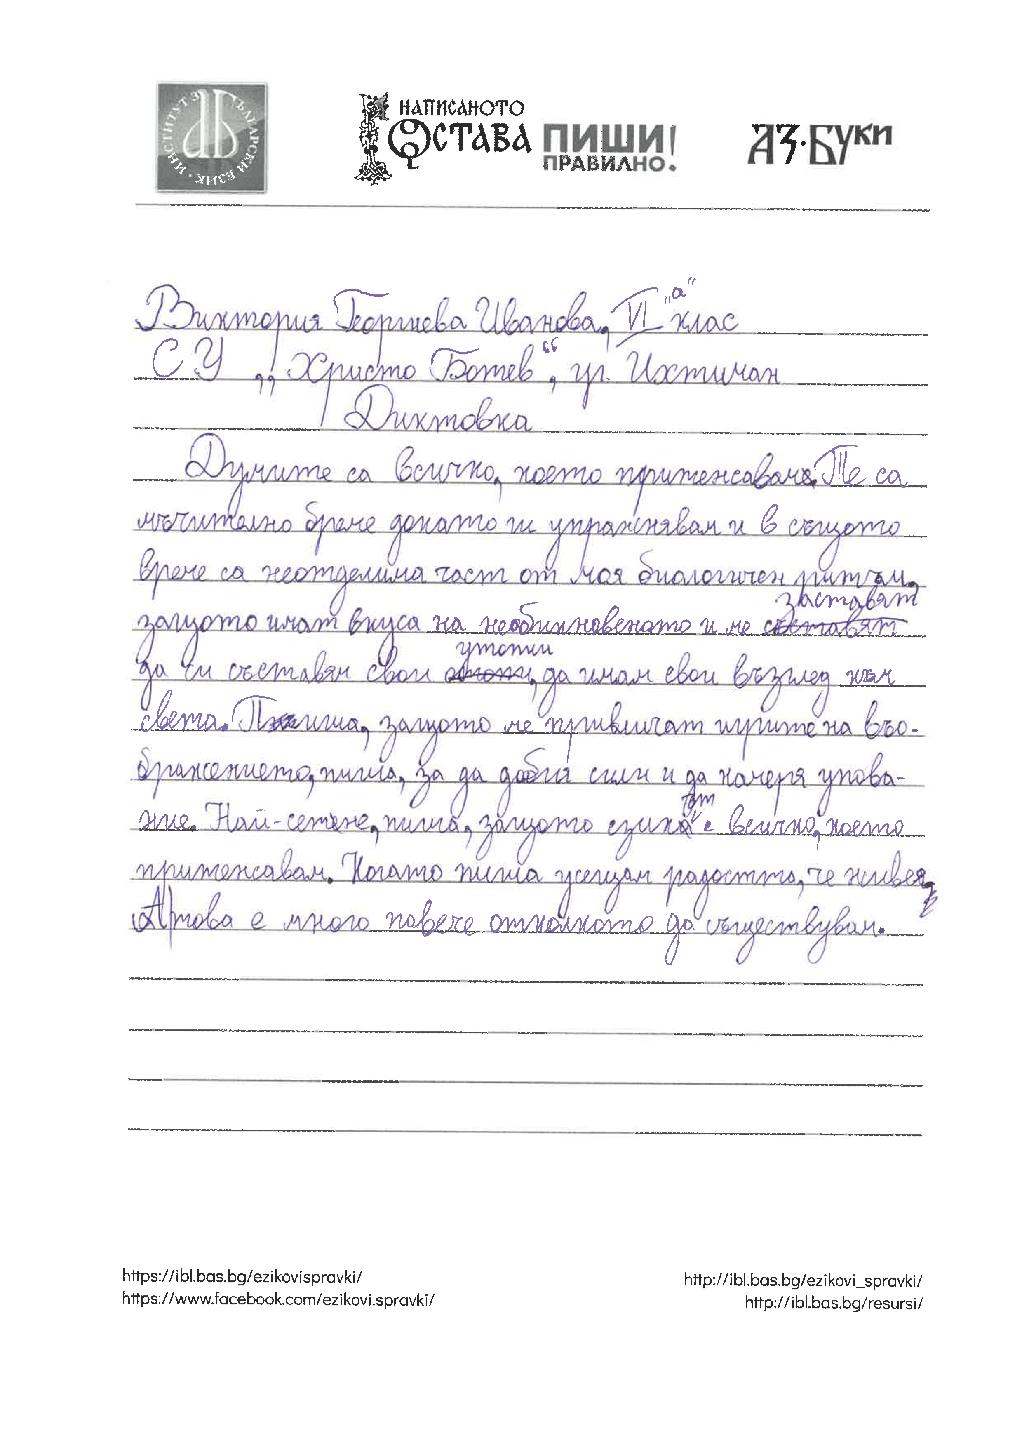 ИНСТИТУТ ЗА БЪЛГАРСКИ ЕЗИК
НАПИСАНОТО
ОСТАВА ПИШИ!
ПРАВИЛНО.
АЗ·БУКИ
Виктория Георгиева Иванова, VI "а" клас
СУ „Христо Ботев“, гр. Ихтиман
Диктовка
Думите са всичко, което притежавам. Те са
мъчително бреме докато ги упражнявам и в същото
време са неотделима част от моя биологичен ритъм,
защото имат вкуса на необикновеното и ме съставят заставят
да си съставям свои утопии, да имам свои възглед към
света. Пиша, защото ме привличат игрите на въо-
бражението, пиша, за да добия сили и да намеря упова-
ние. Най-сетне, пиша, защото езикът е всичко, което
притежавам. Когато пиша усещам радостта, че живея,
А това е много повече отколкото да съществувам.
https://ibl.bas.bg/ezikovispravki/
https://www.facebook.com/ezikovi.spravki/
http://ibl.bas.bg/ezikovi_spravki/
http://ibl.bas.bg/resursi/